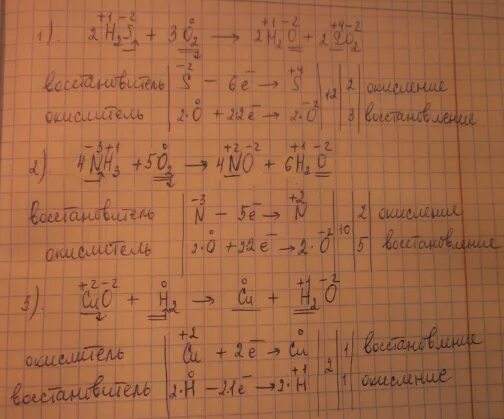 1) 2H₂⁺¹S⁻² + 3O₂⁰ → 2H₂⁺¹O⁻² + 2S⁺⁴O₂⁻²
восстановитель | S⁻² – 6e⁻ → S⁺⁴ | 12 | 2 | окисление
окислитель | 2·O⁰ + 2·2e⁻ → 2·O⁻² | 3 | восстановление
2). 4N⁻³H₃⁺¹ + 5O₂⁰ → 4N⁺²O⁻² + 6H₂⁺¹O⁻²
восстановитель | N⁻³ – 5e⁻ → N⁺² | 2 | окисление
окислитель | 2·O⁰ + 2·2e⁻ → 2·O⁻² | 10 | 5 | восстановление
3). Cu⁺²O⁻² + H₂⁰ → Cu⁰ + H₂⁺¹O⁻²
окислитель | Cu⁺² + 2e⁻ → Cu⁰ | 2 | 1 | восстановление
восстановитель | 2·H⁰ – 2·1e⁻ → 2·H⁺¹ | 1 | окисление